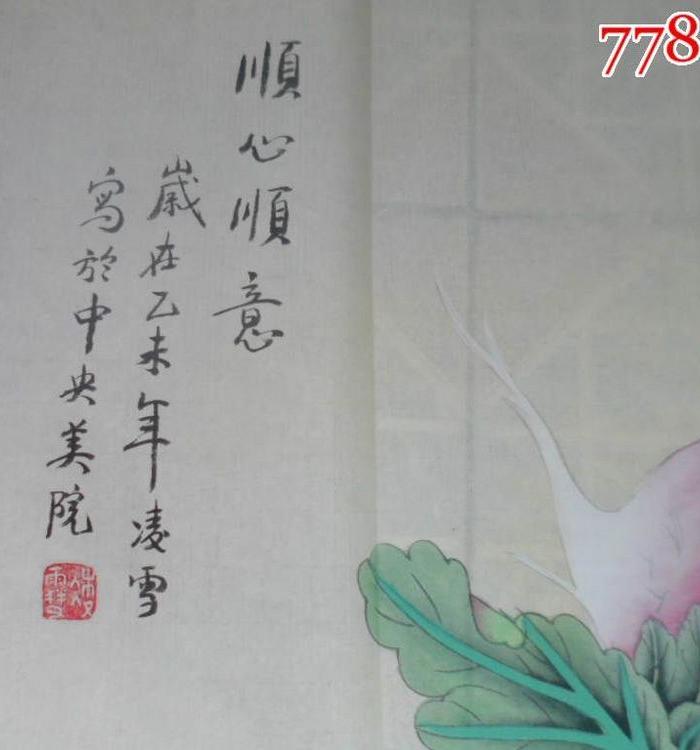 順心順意
歲在乙未年凌雪
寫於中央美院
778